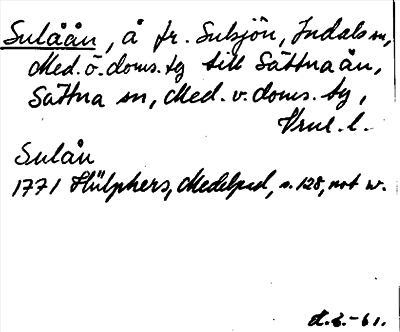 Sulåån, å fr. Sulsjön, Indals sn,
Med. ö. doms. tg till Sättnaån,
Sättna sn, Med. v. doms. tg,
Vnrl. l.
Sulån
1771 Hülphers, Medelpad, s. 128, not w.